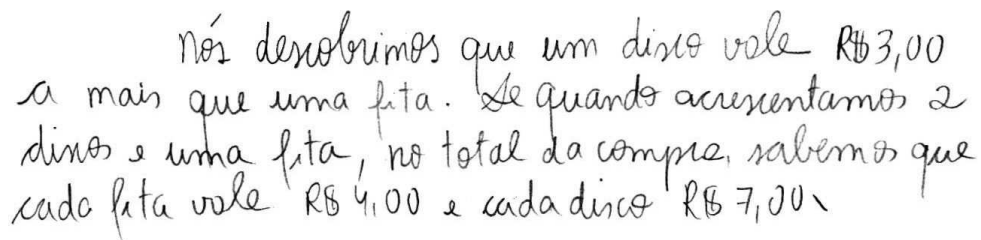 Nós descobrimos que um disco vale R$3,00
a mais que uma fita. Se quando acrescentamos 2
discos e uma fita, no total da compra, sabemos que
cada fita vale R$ 4,00 e cada disco R$ 7,00.